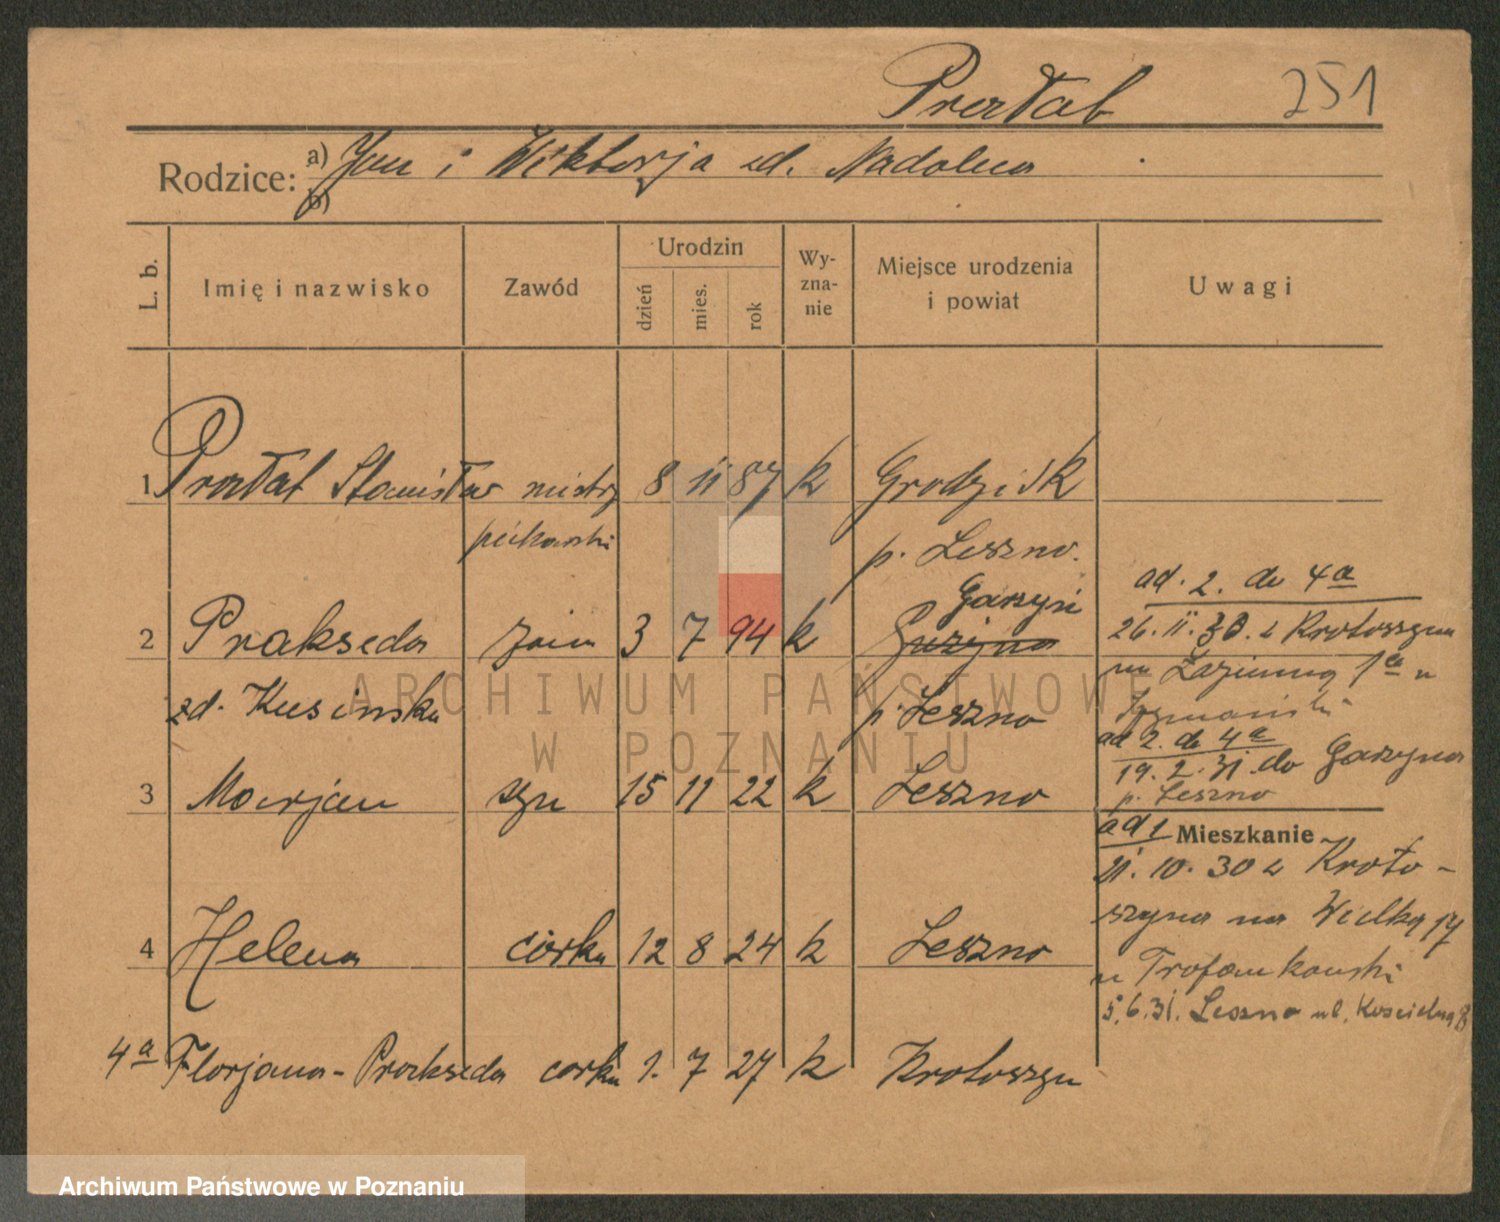 Prałat 251
Rodzice: a) Jan i Wiktorja zd. Nadolna
b)
L. b. Imię i nazwisko Zawód Urodzin dzień mies. rok Wy-zna-nie Miejsce urodzenia i powiat Uwagi
1 Prałat Stanisław mistrz 8 11 87 k Grodzisk
piekarski p. Leszno.
Garzyn
ad. 2. do 4a
2 Prakseda żona 3 7 94 k 26. 11. 30. z Krotoszyna
zd. Kusinska p. Leszno
na Łazienną 1a u
Szymański
ad 2. do 4a
19. 2. 31. do Garzyna
p. Leszno
3 Marjan syn 15 11 22 k Leszno
ad 1 Mieszkanie
21. 10. 30 z Kroto-
szyna na Wielką 17
4 Helena córka 12 8 24 k Leszno
u
5. 6. 31. Leszno ul. Kościelna 8
4a Florjana-Prakseda córka 1. 7 27 k Krotoszyn
ARCHIWUM PAŃSTWOWE
W POZNANIU
Archiwum Państwowe w Poznaniu